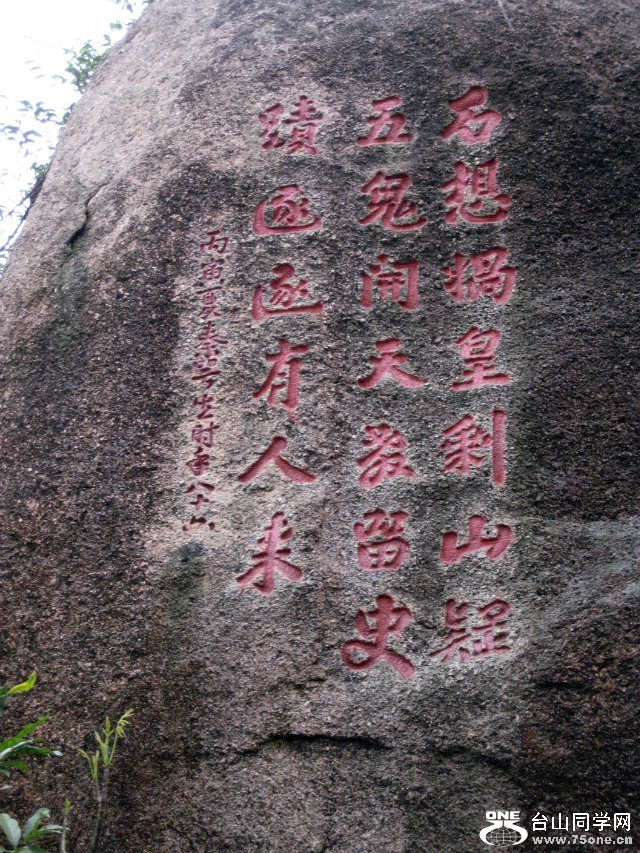 石想媧皇剩山疑
五鬼開天教留史
蹟逐逐有人來
丙寅夏秦咢生時年八十六
ONE 台山同学网
www.75one.cn